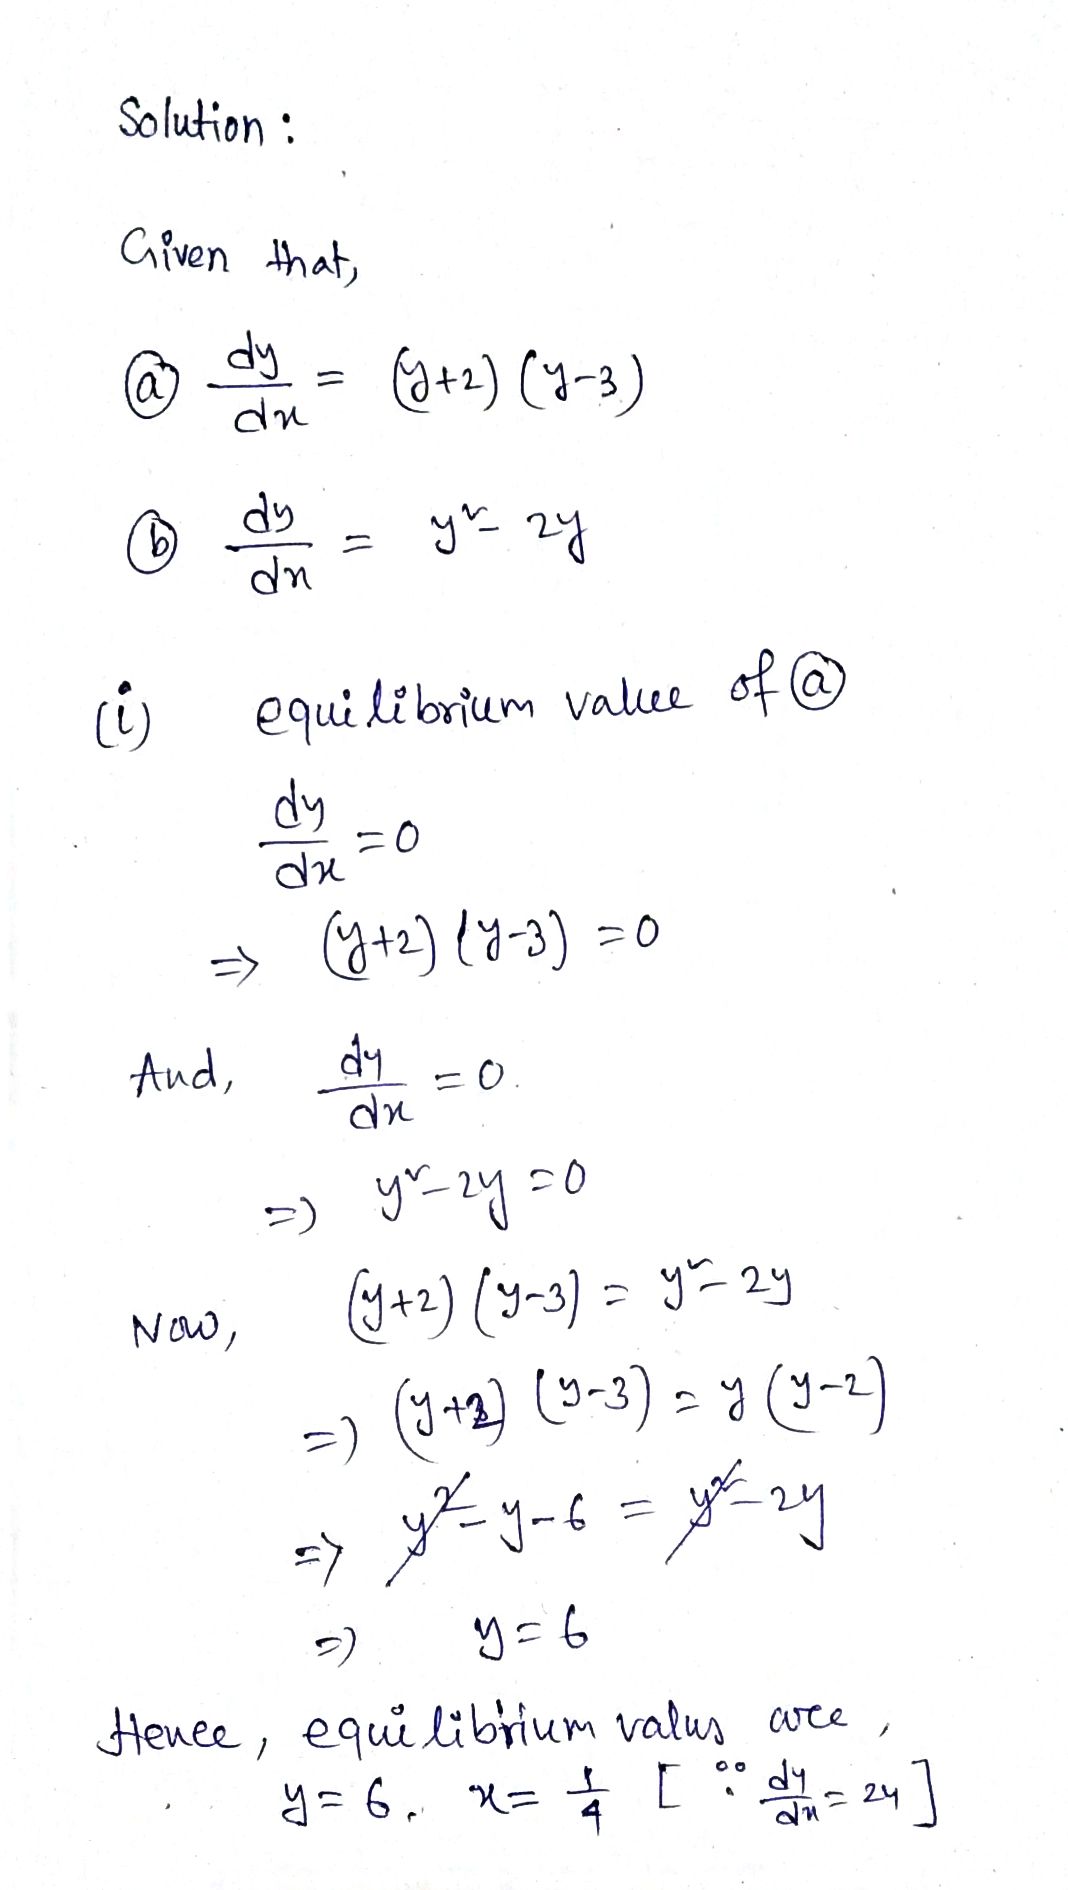 Solution :
Given that,
ⓐ dy/dx = (y+2) (y-3)
ⓑ dy/dx = y² - 2y
(i) equilibrium value of ⓐ
dy/dx = 0
⇒ (y+2) (y-3) = 0
And, dy/dx = 0.
⇒ y² - 2y = 0
Now, (y+2) (y-3) = y² - 2y
⇒ (y+2) (y-3) = y (y-2)
⇒ y² - y - 6 = y² - 2y
⇒ y = 6
Hence, equilibrium valus are,
y = 6, x = 1/4 [∵ dy/dx = 24]